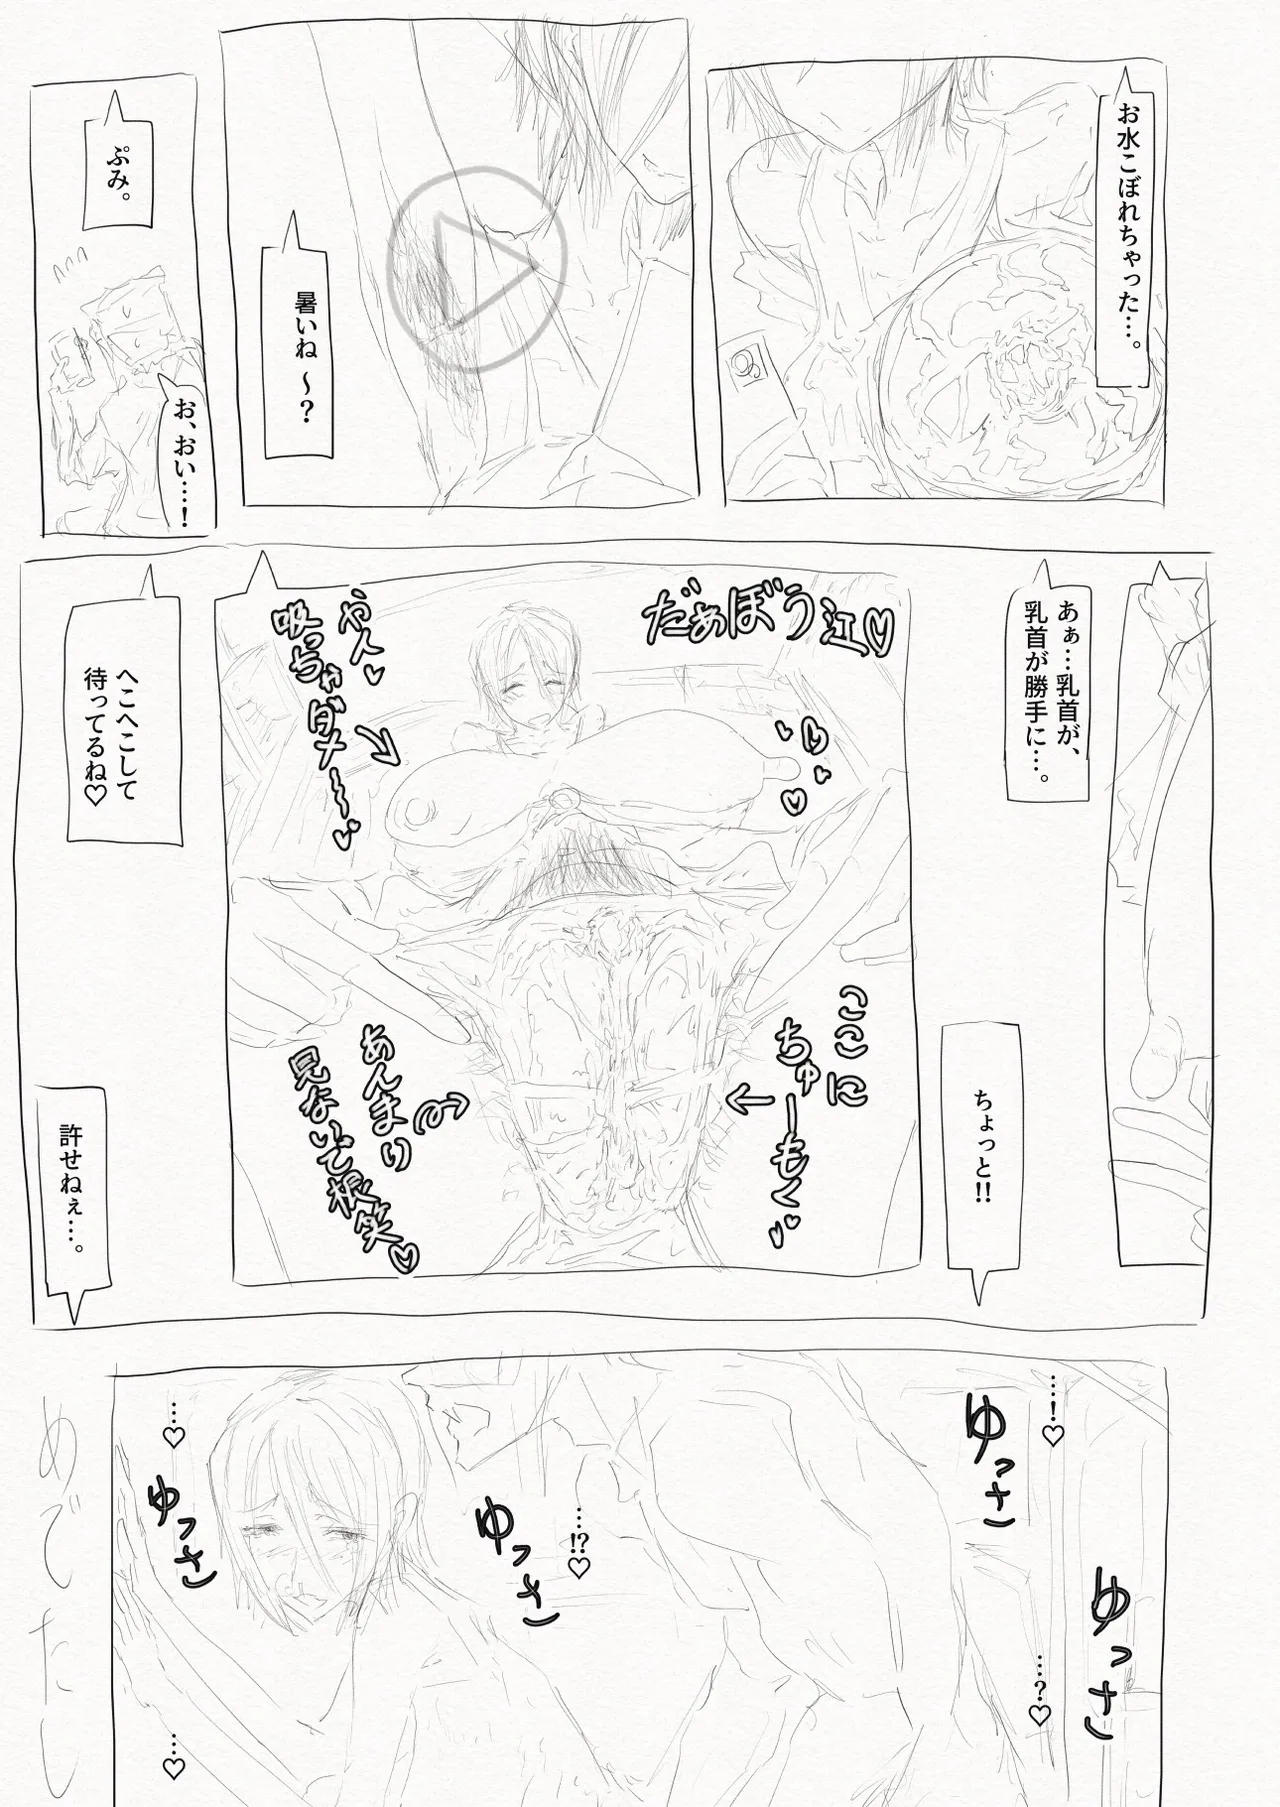 お水こぼれちゃった…。
暑いね～?
ぷみ。
お、おい…!
あぁ…乳首が、
乳首が勝手に…。
ちょっと!!
だぁぼう江♡
やん♡
吸っちゃダメ～♡
ここに
ちゅーもく♡
あんまり
見ないで根笑♡
へこへこして
待ってるね♡
許せねぇ…。
…!♡
ゆっさ
ゆっさ
…?♡
…!?♡
ゆっさ
…♡
ゆっさ
…♡
めでたし